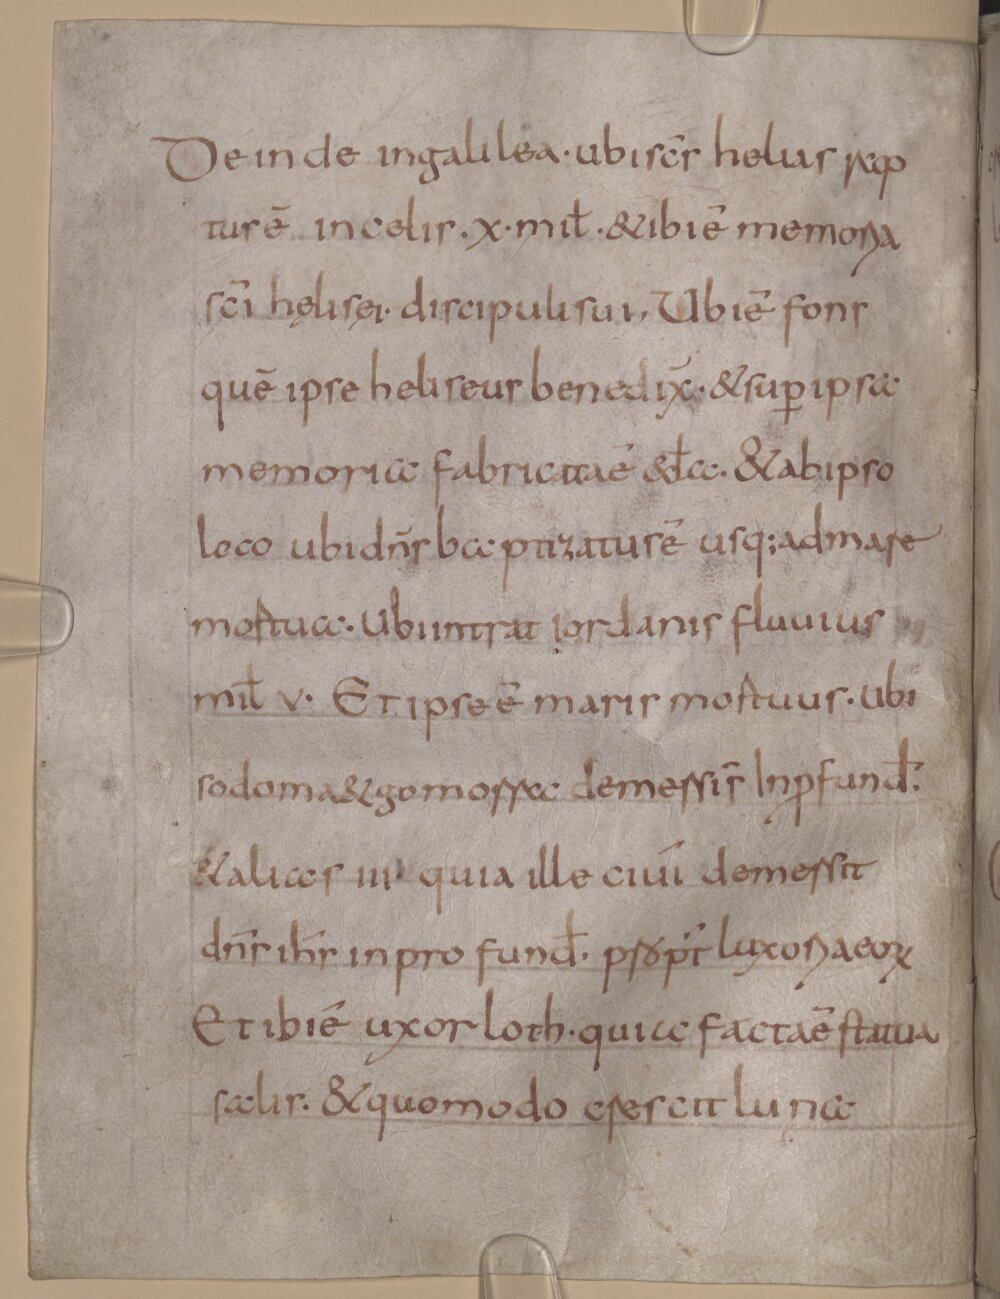 Deinde ingalilea · ubi sc̄s helias rap
tus ē in celis · x · mil̄ · & ibi ē memoria
sc̄i helisei · discipuli sui, Ubi ē fons
quē ipse heliseus benedix̄ · & suꝑ ipsa
memoria fabricata ē &̄cc · & ab ipso
loco ubi dn̄s baptizatus ē usq; ad mare
mortua · Ubi intrat iordanis fluuius
mil̄ v · Et ipse ē maris mortuus · ubi
sodoma & gomorra demessis̄ In ꝓfund̄ ·
& alicas iii · quia ille ciui̅ demessit
dn̄s ih̄s in profund̄ · propt̄ luxoria eoꝝ
Et ibi ē uxor loth · quia facta ē statua
salis · & quomodo crescit luna